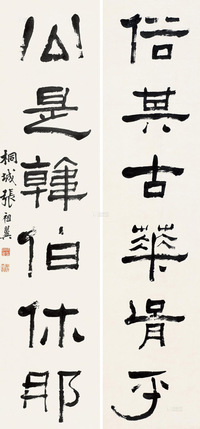 俗其古華胥乎
公是韓伯休那
桐城張祖翼